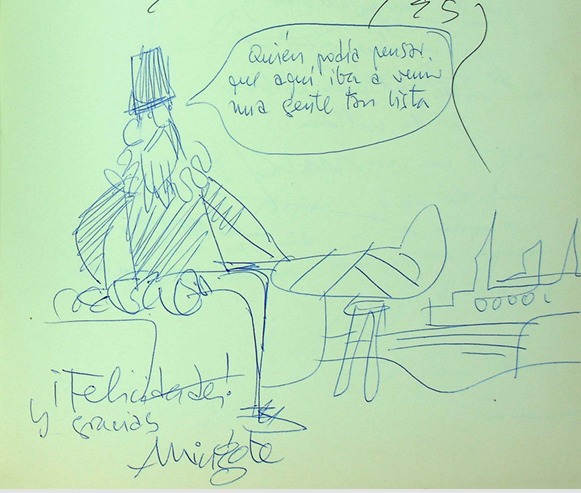 Quién podía pensar
que aquí iba a venir
una gente tan lista
¡Felicidades!
y gracias
Mingote